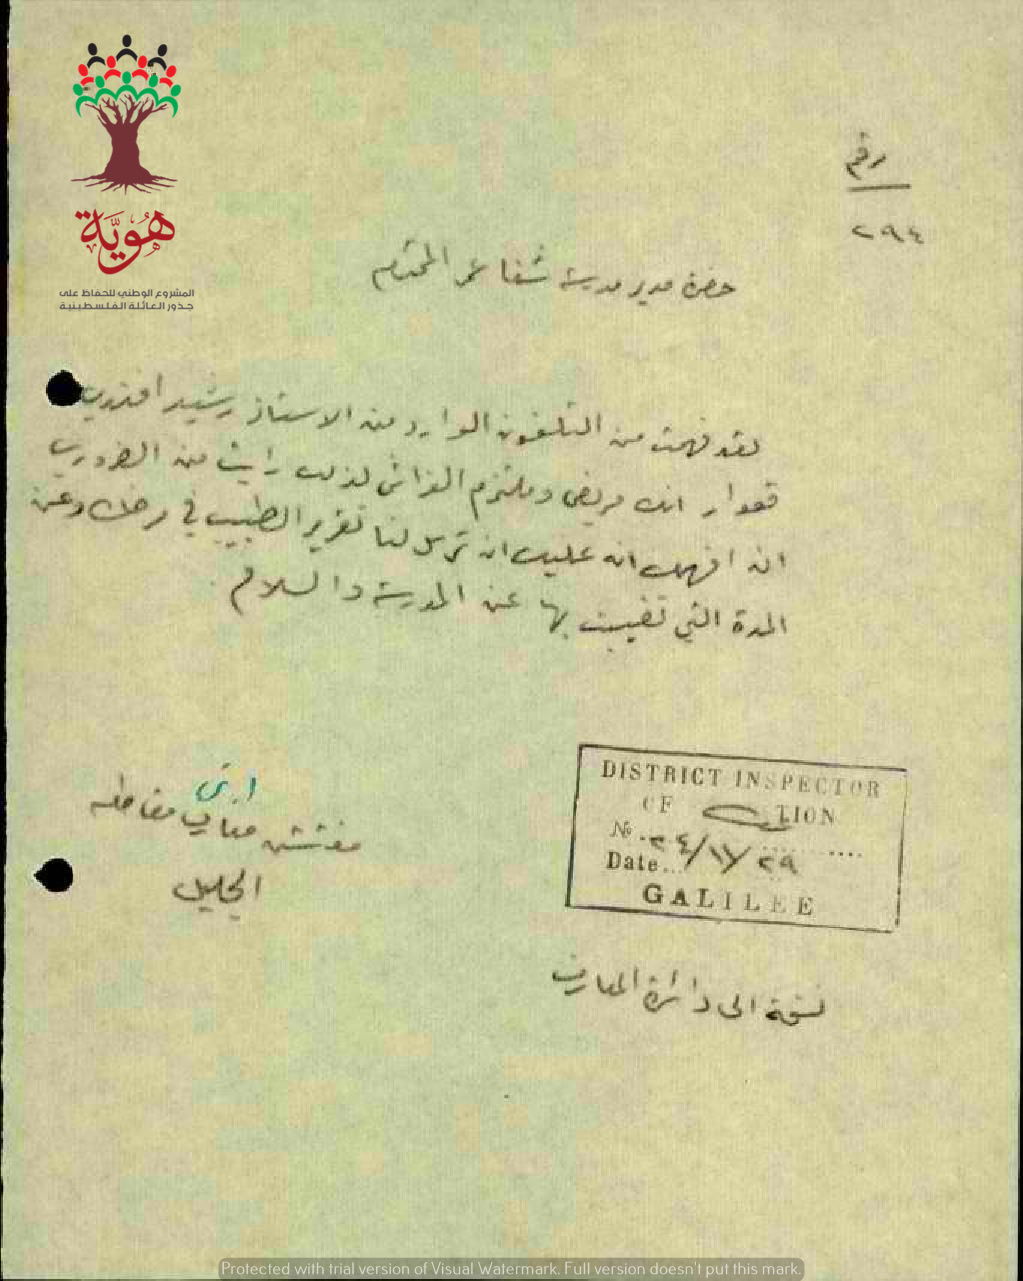 هوية
المشروع الوطني للحفاظ على
جذور العائلة الفلسطينية
رقم
٢٩٤
حضرة مدير مدرسة شفا عمر المحترم
لقد فهمت من التلفون الوارد من الاستاذ رشيد افندي
قعوار انك مريض وملتزم الفراش لذلك رايت من الضروري
ان افهمك انه عليك ان ترسل لنا تقرير الطبيب في مرضك وعن
المدة التي تغيبت بها عن المدرسة والسلام
مفتش معارف مقاطعة
الجليل
DISTRICT INSPECTOR
OF
TION
No. ٢٤/١١/٢٩
Date...
GALILEE
نسخة الى دائرة المعارف
Protected with trial version of Visual Watermark. Full version doesn't put this mark.